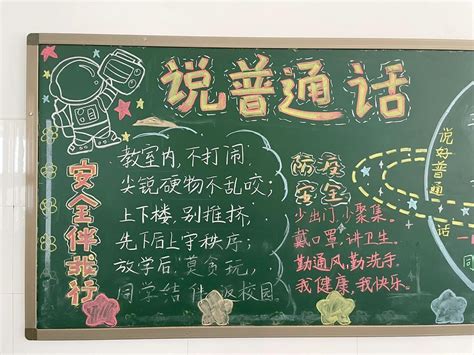 说普通话
安全伴我行
教室内,不打闹,
尖锐硬物不乱咬;
上下楼,别推挤,
先下后上守秩序;
放学后,莫贪玩,
同学结伴返校园.
防疫
安全
少出门,少聚集.
戴口罩,讲卫生.
勤通风,勤洗手.
我健康,我快乐.
说好普通话